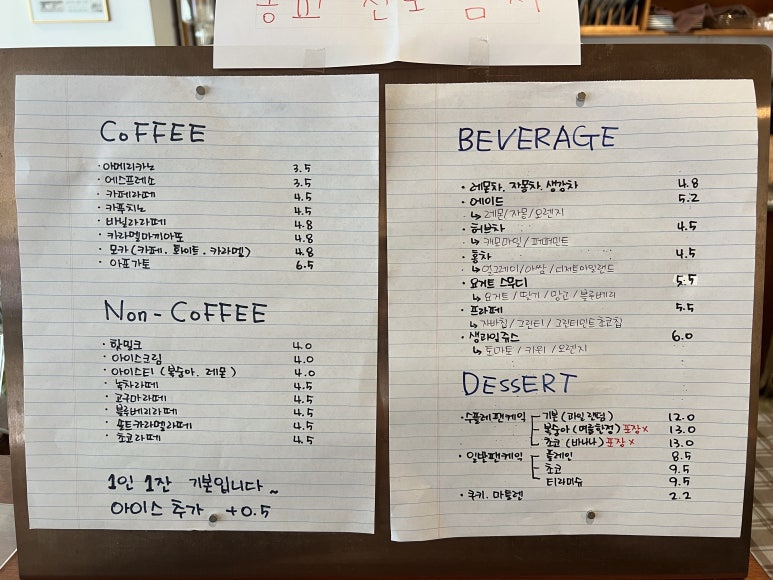 COFFEE
· 아메리카노 3.5
· 에스프레소 3.5
· 카페라떼 4.5
· 카푸치노 4.5
· 바닐라라떼 4.8
· 카라멜마끼아또 4.8
· 모카 (카페. 화이트. 카라멜) 4.8
· 아포가토 6.5
Non - COFFEE
· 핫밀크 4.0
· 아이스크림 4.0
· 아이스티 (복숭아. 레몬) 4.0
· 녹차라떼 4.5
· 고구마라떼 4.5
· 블루베리라떼 4.5
· 솔트카라멜라떼 4.5
· 초코라떼 4.5
1인 1잔 기본입니다~
아이스 추가 +0.5
BEVERAGE
· 레몬차. 자몽차. 생강차 4.8
· 에이드 5.2
↳ 레몬/자몽/오렌지
· 허브차 4.5
↳ 캐모마일/페퍼민트
· 홍차 4.5
↳ 얼그레이/아쌈/디저트아일랜드
· 요거트 스무디 5.5
↳ 요거트/딸기/망고/블루베리
· 프라페 5.5
↳ 자바칩/그린티/그린티민트초코칩
· 생과일쥬스 6.0
↳ 토마토/키위/오렌지
DESSERT
· 수플레팬케익 기본 (과일랜덤) 12.0
복숭아 (여름한정) 포장 x 13.0
초코 (바나나) 포장 x 13.0
· 일반팬케익 플레인 8.5
초코 9.5
티라미슈 9.5
· 쿠키. 마들렌 2.2